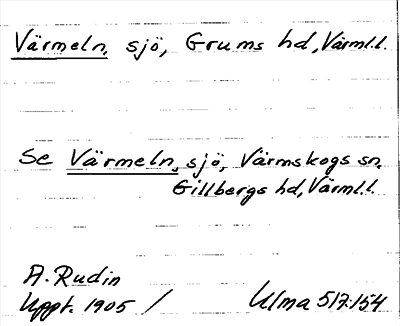 Värmeln, sjö, Grums hd, Värml.l.
Se Värmeln, sjö, Värmskogs sn,
Gillbergs hd, Värml.l.
A. Rudin
Uppt. 1905 / Ulma 517:154